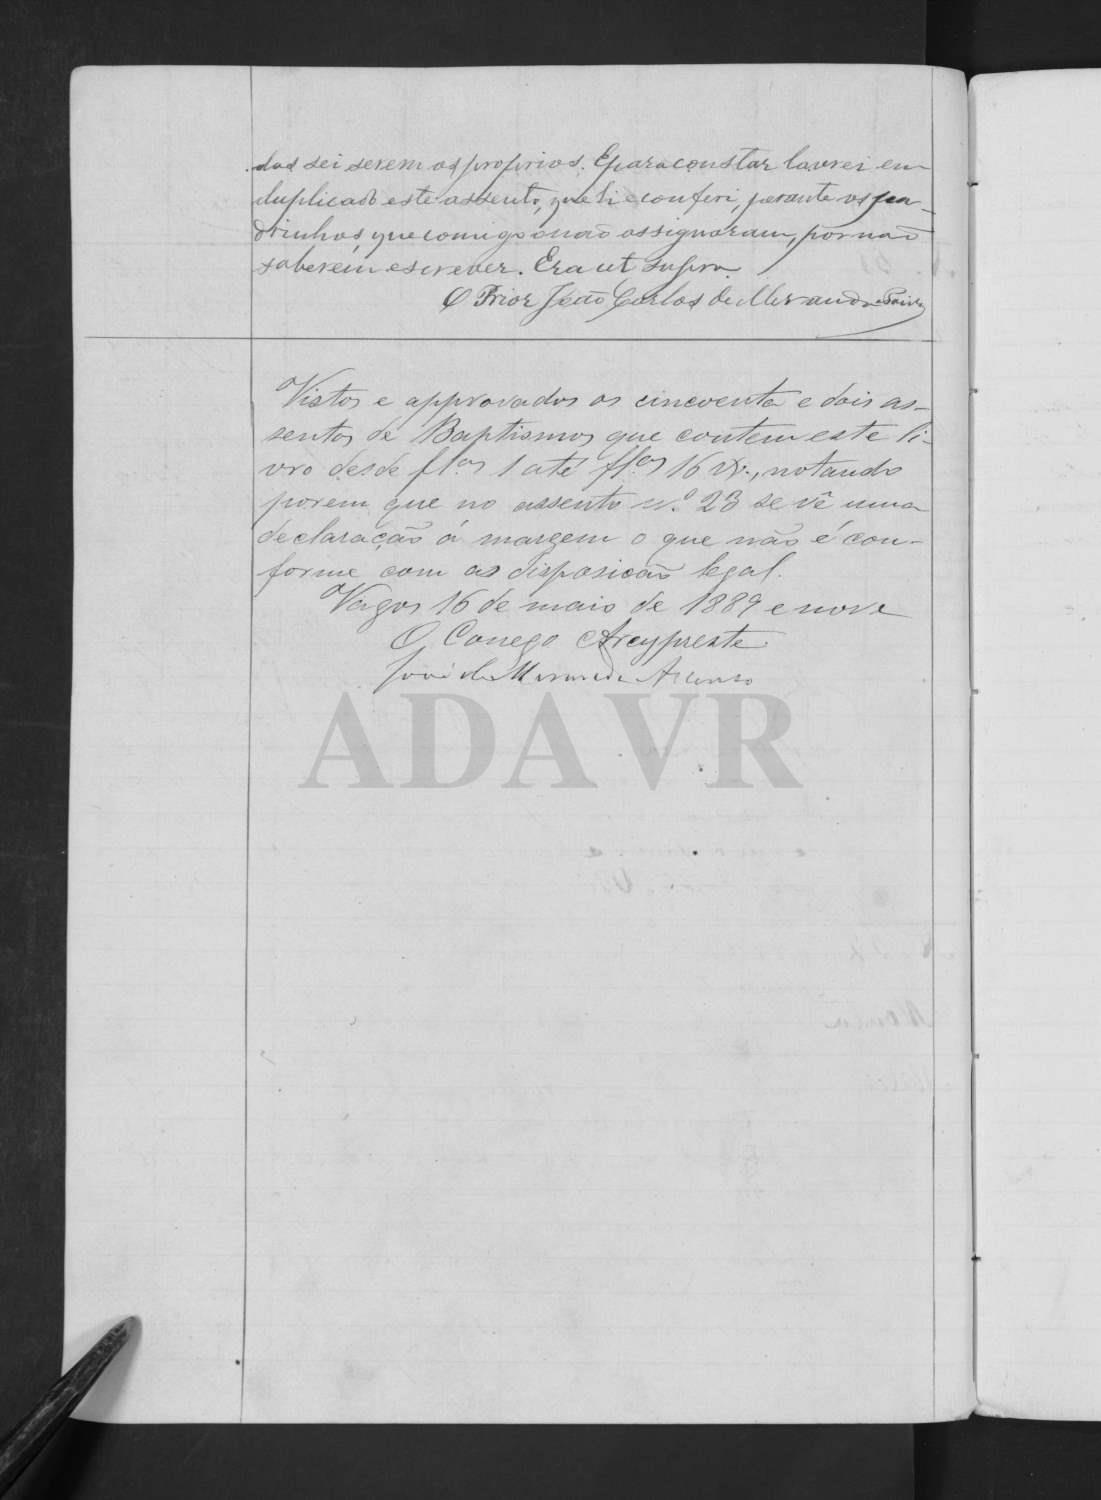 dos sei serem os proprios. E para constar lavrei em
duplicado este assento, que li e conferi, perante os pa-
drinhos, que comigo o não assignaram, por não
saberem escrever. Era ut supra.
O Prior João Carlos de Miranda Paiva
Vistos e approvados os cincoenta e dois as-
sentos de Baptismos que contem este li-
vro desde fl.as 1 até fl.as 16 v., notando
porem que no assento n.º 23 se vê uma
declaração á margem o que não é con-
forme com as disposicão legal.
Vagos 16 de maio de 1889 e nove
O Conego Arcypreste
José de
ADAVR